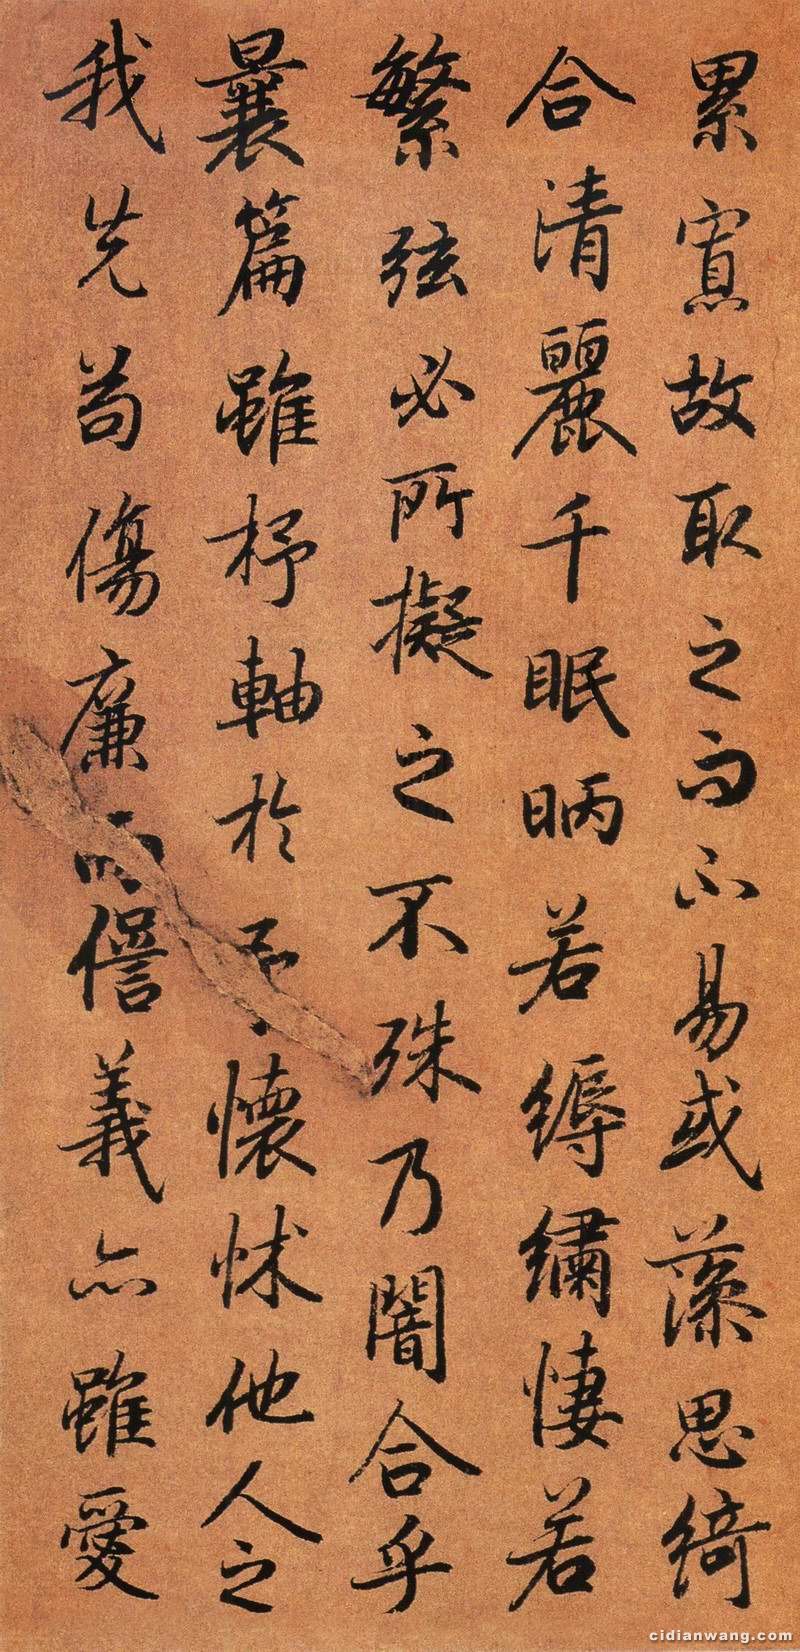 累寡故取之而不易或藻思綺
合清麗千眠昞若縟繡悽若
繁弦必所擬之不殊乃闇合乎
曩篇雖杼軸於予懷怵他人之
我先苟傷廉而愆義亦雖愛
cidianwang.com